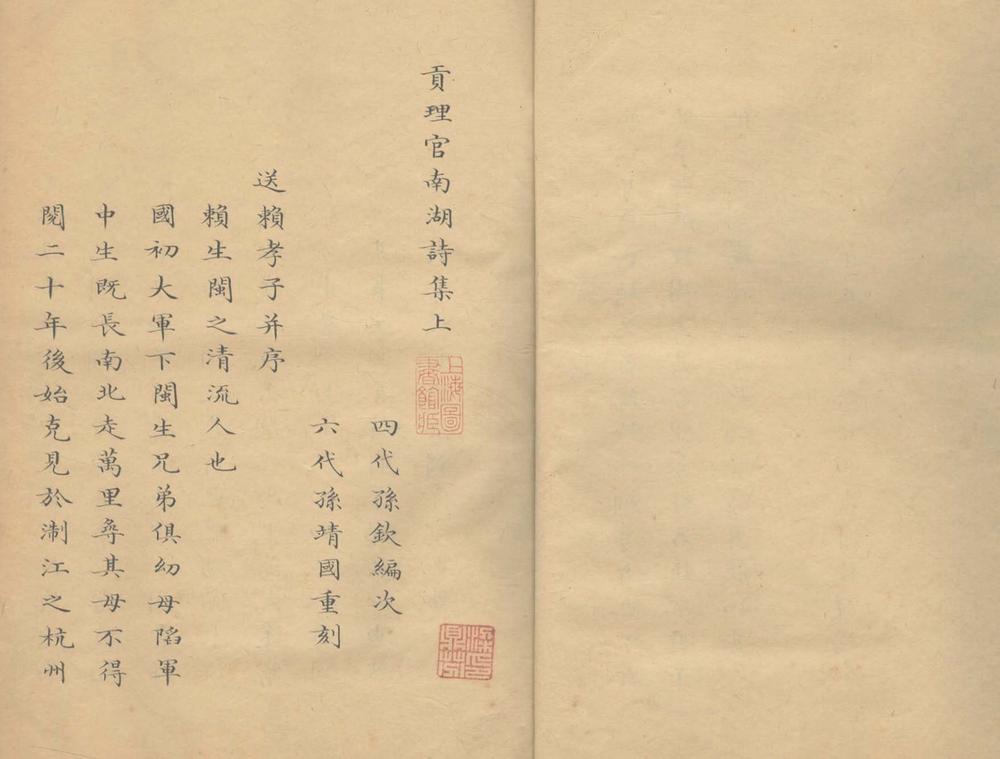 貢理官南湖詩集上
上海圖書館藏
四代孫欽編次
六代孫靖國重刻
送賴孝子并序
賴生閩之清流人也
國初大軍下閩生兄弟俱幼母陷軍
中生既長南北走萬里尋其母不得
閱二十年後始克見於淛江之杭州